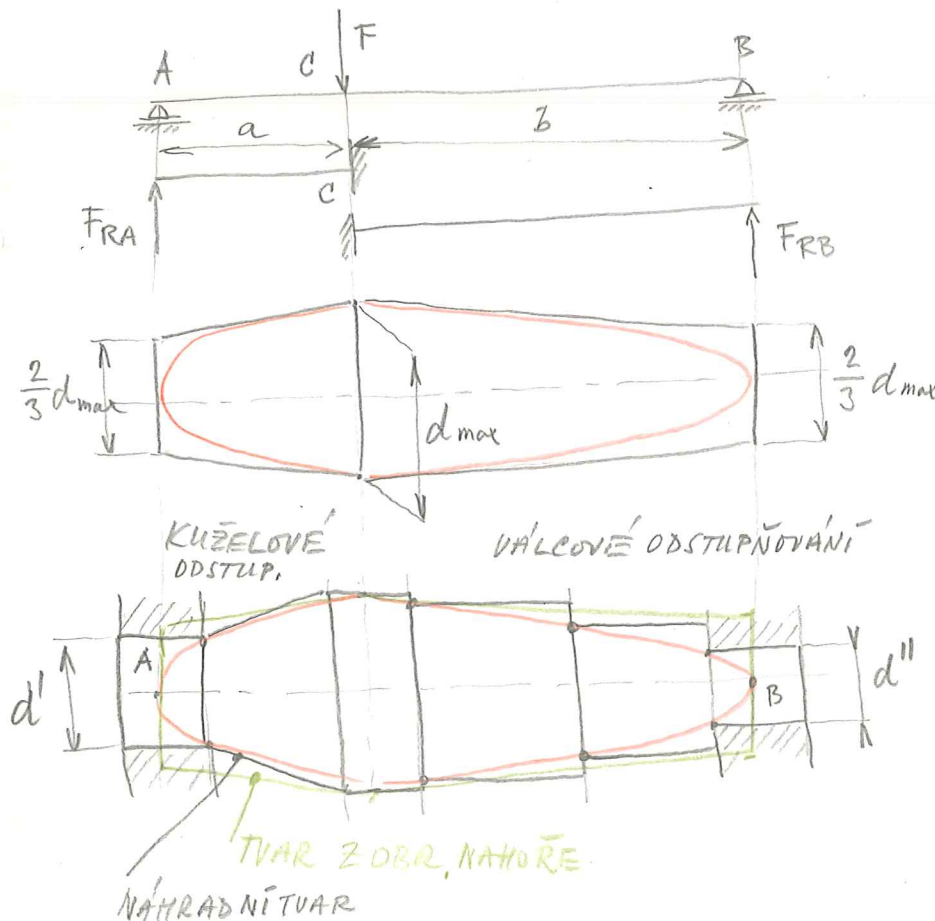 F
A
C
B
a
b
C
F_RA
F_RB
2/3 d_max
d_max
2/3 d_max
KUŽELOVÉ
ODSTUP.
VÁLCOVÉ ODSTUPŇOVÁNÍ
A
d'
B
d"
TVAR Z OBR. NAHOŘE
NÁHRADNÍ TVAR